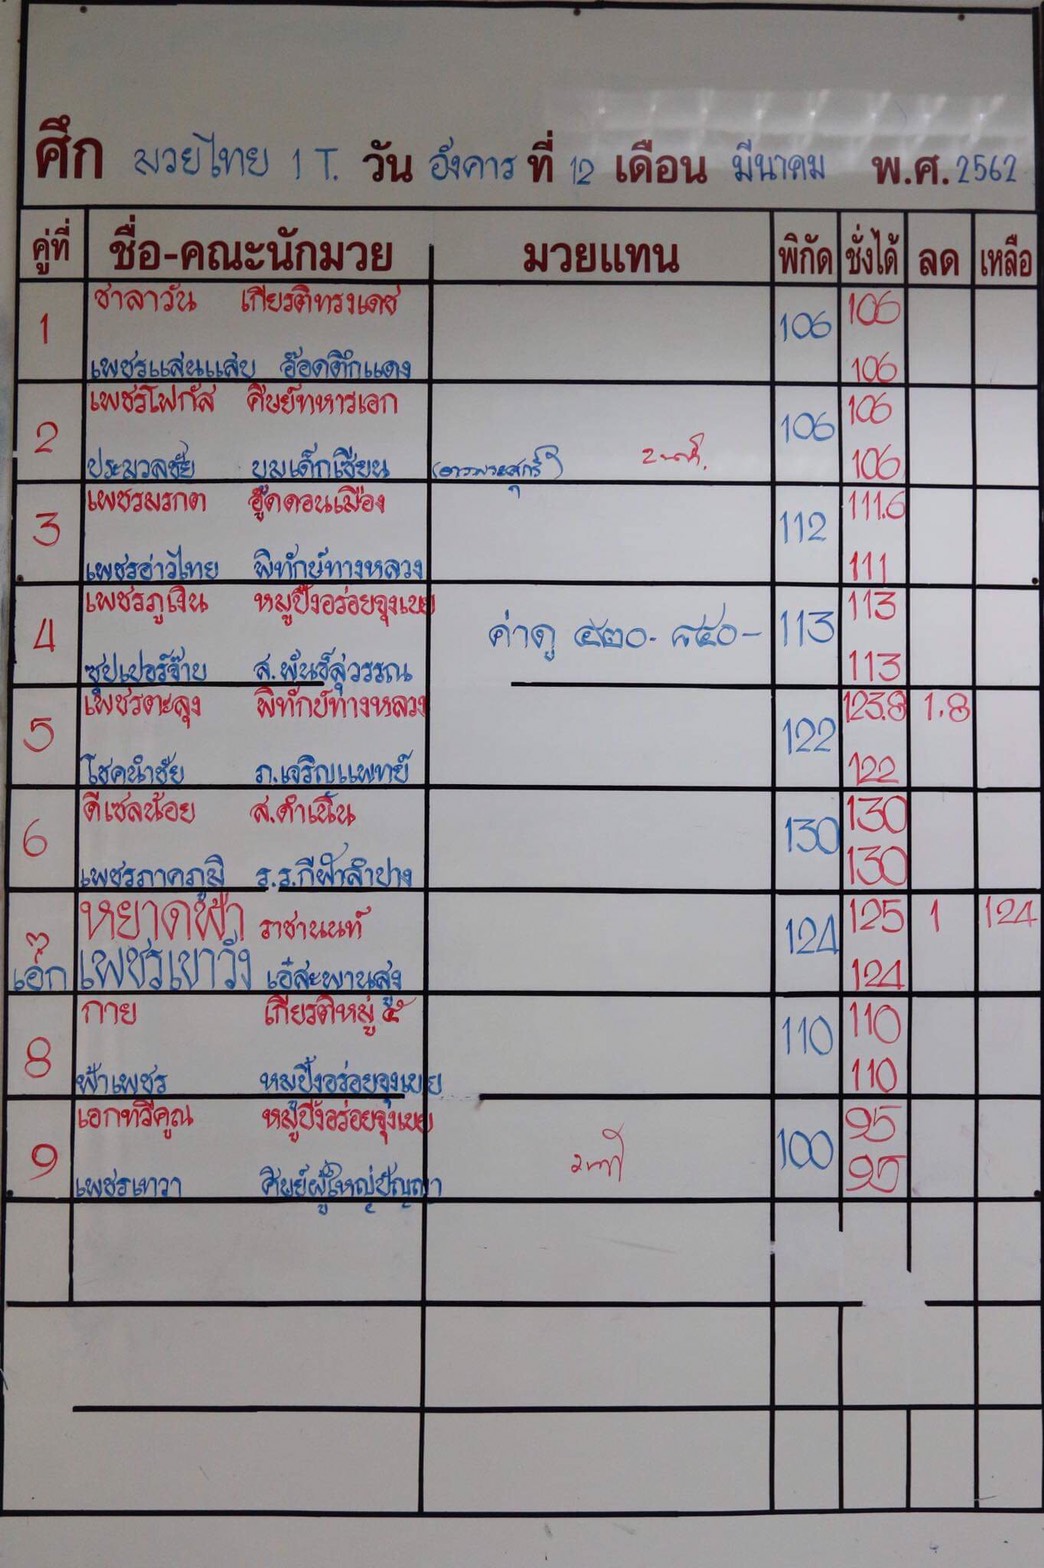 ศึก มวยไทย 1 T. วัน อังคาร ที่ 12 เดือน มีนาคม พ.ศ. 2562
คู่ที่ ชื่อ-คณะนักมวย มวยแทน พิกัด ชั่งได้ ลด เหลือ
1 ชาลาวัน เกียรติทรงเดช 106 106
เพชรแสนแสบ อ๊อดตึกแดง 106
2 เพชรโฟกัส ศิษย์ทหารเอก 106 106
ประมวลชัย บมเด็กเซียน 106
3 เพชรมรกต อู๊ดดอนเมือง 112 111.6
เพชรอ่าวไทย พิทักษ์ทางหลวง 111
4 เพชรภูเงิน หมูปิ้งอร่อยจุงเบย ค่าดู ๕๒๐- ๙๕๐- 113 113
ซุปเปอร์จ๊าย ส.พันธ์สุวรรณ 113
5 เพชรตะลุง พิทักษ์ทางหลวง 122 123.8 1.8
โชคนำชัย ภ.เจริญแพทย์ 122
6 ดีเซลน้อย ส.ดำเนิน 130 130
เพชรภาคภูมิ ร.ร.กีฬาลำปาง 130
๗ หยาดฟ้า ราชานนท์ 124 125 1 124
เอก เพชรเขาวัง เอ๋สะพานสูง 124
8 กาย เกียรติหมู่ ๕ 110 110
ฟ้าเพชร หมูปิ้งอร่อยจุงเบย 110
9 เอกทวีคูณ หมูปิ้งอร่อยจุงเบย 100 95
เพชรเทวา ศิษย์ผู้ใหญ่ปัญญา 95